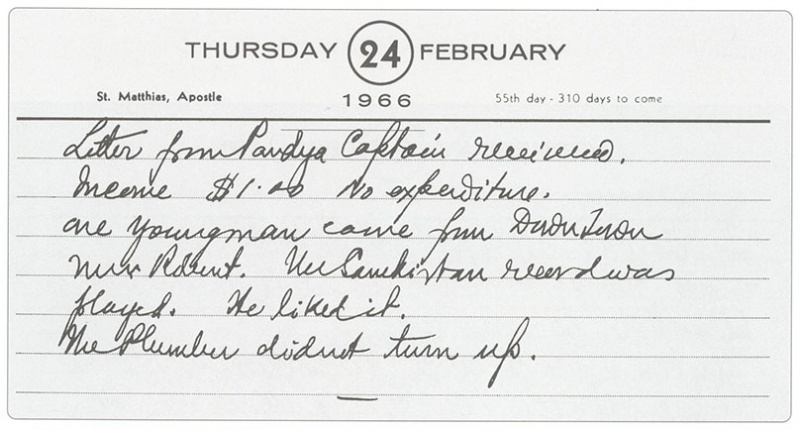 THURSDAY 24 FEBRUARY
St. Matthias, Apostle 1966 55th day - 310 days to come
Letter from Pandya Captain received.
Income $1.00 No expenditure.
one youngman came from DownTown
. The Samkirtan record was
played. He liked it.
The Plumber didnot turn up.